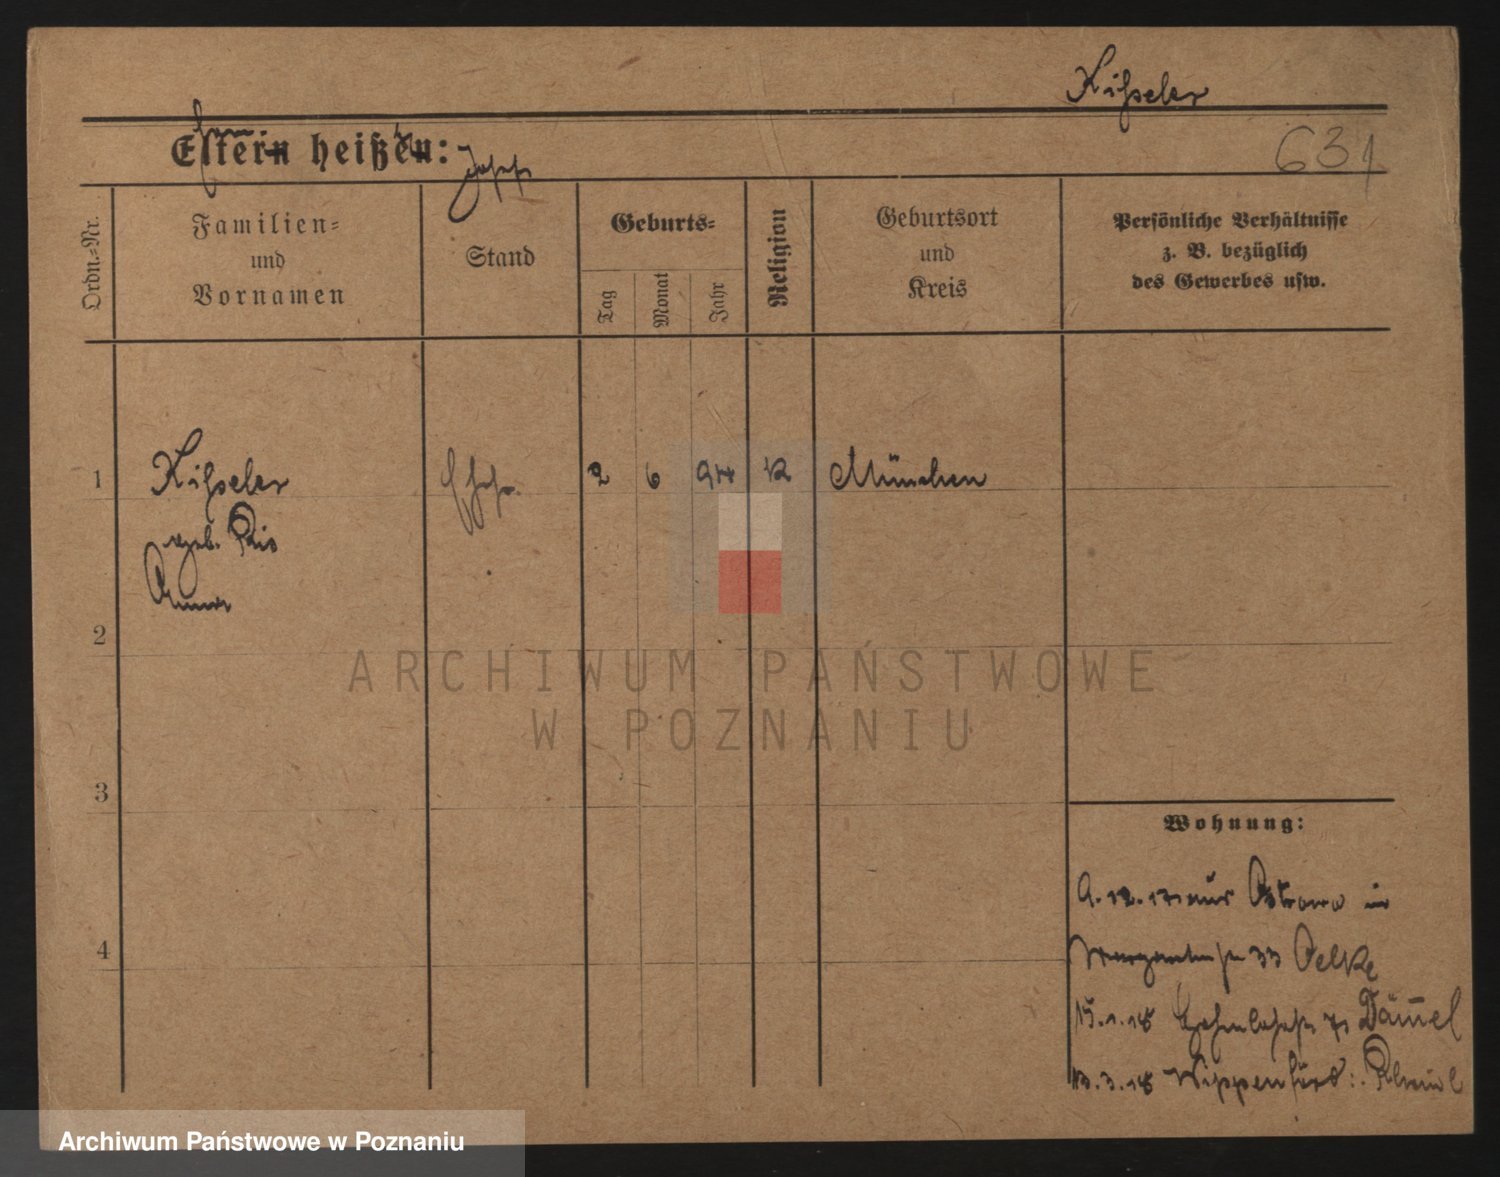 Kißeler
Eltern heißen:
Josef
631
Ordn.-Nr.
Familien-
und
Vornamen
Stand
Geburts-
Tag
Monat
Jahr
Religion
Geburtsort
und
Kreis
Persönliche Verhältnisse
z. B. bezüglich
des Gewerbes usw.
1 Kißeler 2 6 94 K München
geb. Ris
Anna
2
3
4
Wohnung:
9.12.17 aus Ostrowo in
33 Oelke
15.1.18 Dämel
13.3.18 Wippenfürd: Rheinl
ARCHIWUM PAŃSTWOWE
W POZNANIU
Archiwum Państwowe w Poznaniu